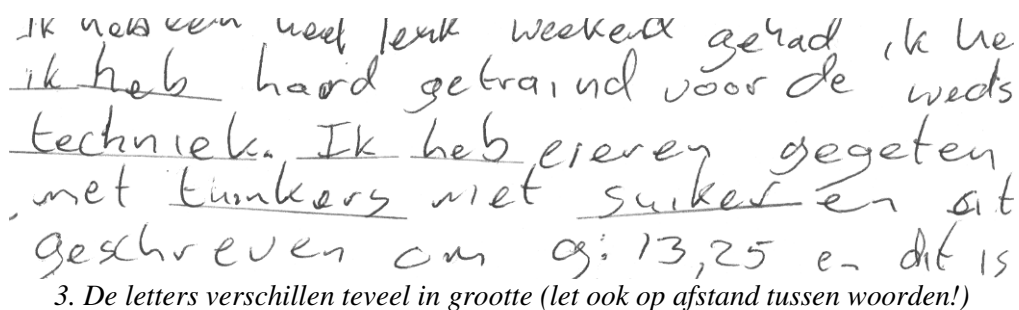 Ik heb een heel leuk weekend gehad ik he
ik heb hard getraind voor de weds
techniek. Ik heb eieren gegeten
met tuinkers met suiker en dit
geschreven om 9: 13,25 en dit is
3. De letters verschillen teveel in grootte (let ook op afstand tussen woorden!)